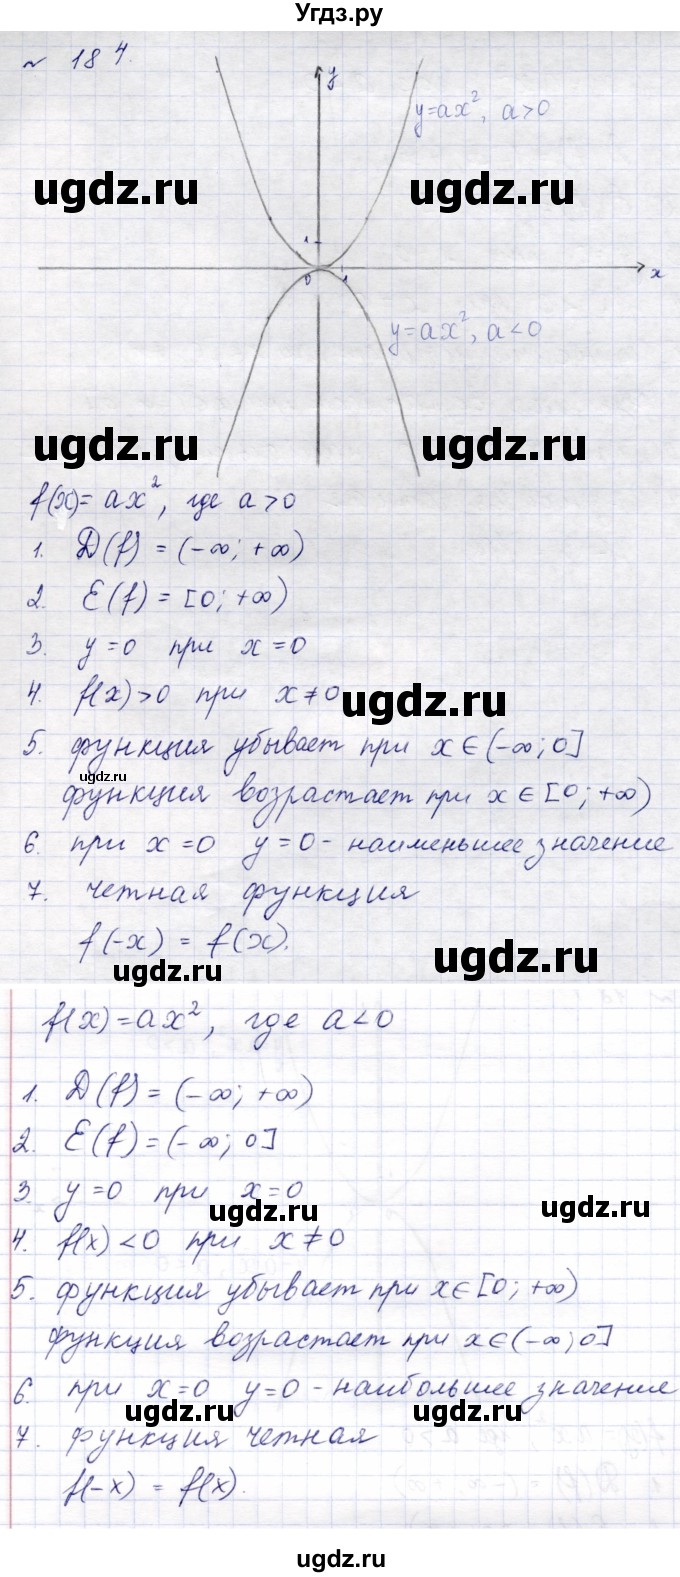 Угдз.ру
№ 184.
y
y=ax², a>0
ugdz.ru ugdz.ru
1
0 1 x
y=ax², a<0
ugdz.ru ugdz.ru
f(x)=ax², где a>0
1. D(f)=(-∞; +∞)
2. E(f)=[0; +∞)
3. y=0 при x=0
4. f(x)>0 при x≠0
ugdz.ru
5. функция убывает при x∈(-∞; 0]
ugdz.ru
функция возрастает при x∈[0; +∞)
6. при x=0 y=0 - наименьшее значение
7. четная функция
f(-x) = f(x).
ugdz.ru ugdz.ru
f(x)=ax², где a<0
1. D(f)=(-∞; +∞)
2. E(f)=(-∞; 0]
3. y=0 при x=0
ugdz.ru ugdz.ru
4. f(x)<0 при x≠0
5. функция убывает при x∈[0; +∞)
функция возрастает при x∈(-∞; 0]
6. при x=0 y=0 - наибольшее значение
ugdz.ru ugdz.ru
7. функция четная
f(-x) = f(x).
ugdz.ru